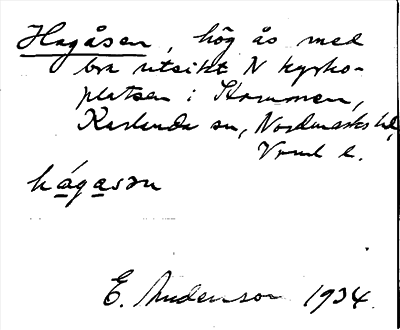 Hagåsen, hög ås med
bra utsikt N kyrko-
platsen i Strommen,
Karlanda sn, Nordmarks hd,
Vrml l.
hágasɷn
E. Andersson 1934.